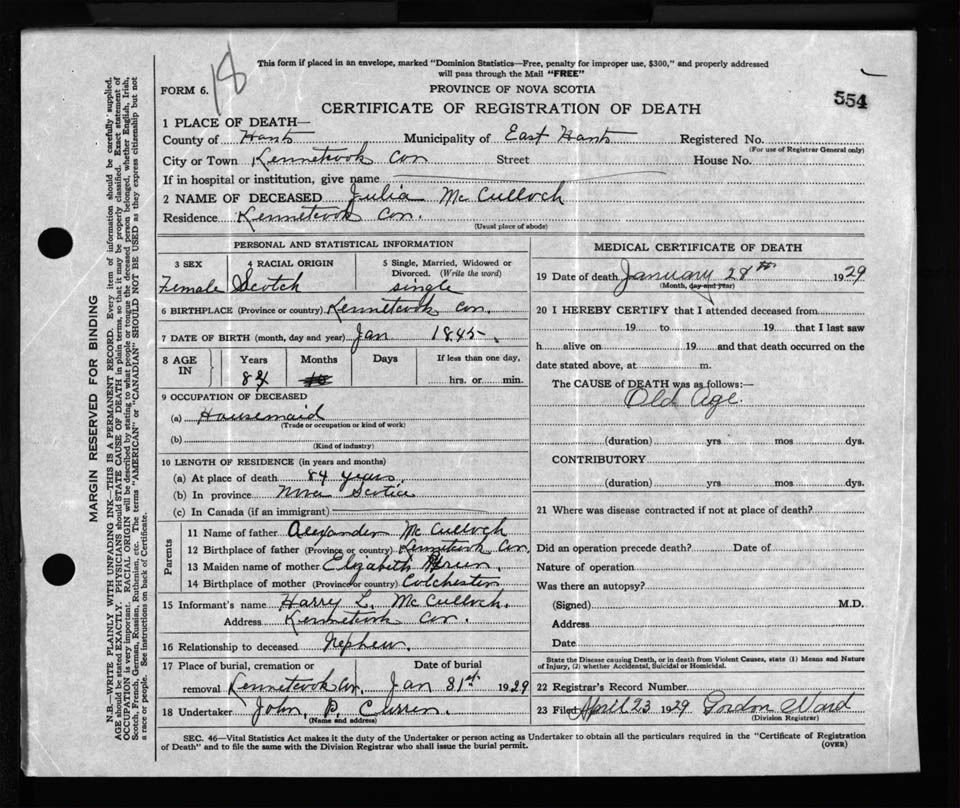 18
This form if placed in an envelope, marked "Dominion Statistics—Free, penalty for improper use, $300," and properly addressed
will pass through the Mail "FREE"
FORM 6.
PROVINCE OF NOVA SCOTIA
554
CERTIFICATE OF REGISTRATION OF DEATH
1 PLACE OF DEATH—
County of Hants Municipality of East Hants Registered No.
(For use of Registrar General only)
City or Town Kennetcook Cor Street House No.
If in hospital or institution, give name
2 NAME OF DECEASED Julia McCulloch
Residence Kennetcook Cor.
(Usual place of abode)
PERSONAL AND STATISTICAL INFORMATION
3 SEX 4 RACIAL ORIGIN 5 Single, Married, Widowed or
Divorced. (Write the word)
Female Scotch single
6 BIRTHPLACE (Province or country) Kennetcook Cor.
7 DATE OF BIRTH (month, day and year) Jan 1845
8 AGE IN Years Months Days If less than one day,
84 hrs. or min.
9 OCCUPATION OF DECEASED
(a) Housemaid
(Trade or occupation or kind of work)
(b)
(Kind of industry)
10 LENGTH OF RESIDENCE (in years and months)
(a) At place of death 84 years
(b) In province Nova Scotia
(c) In Canada (if an immigrant)
Parents
11 Name of father Alexander McCulloch
12 Birthplace of father (Province or country) Kennetcook Cor.
13 Maiden name of mother Elizabeth
14 Birthplace of mother (Province or country) Colchester
15 Informant's name Harry L. McCulloch.
Address Kennetcook Cor.
16 Relationship to deceased Nephew.
17 Place of burial, cremation or Date of burial
removal Kennetcook Cor. Jan 31st. 1929
18 Undertaker John P. Curren
(Name and address)
MEDICAL CERTIFICATE OF DEATH
19 Date of death January 28th 1929
(Month, day and year)
20 I HEREBY CERTIFY that I attended deceased from
19 to 19 that I last saw
h alive on 19 and that death occurred on the
date stated above, at m.
The CAUSE of DEATH was as follows:—
Old Age.
(duration) yrs mos dys.
CONTRIBUTORY
(duration) yrs. mos. dys.
21 Where was disease contracted if not at place of death?
Did an operation precede death? Date of
Nature of operation
Was there an autopsy?
(Signed) M.D.
Address
Date
State the Disease causing Death, or in death from Violent Causes, state (1) Means and Nature
of Injury, (2) whether Accidental, Suicidal or Homicidal.
22 Registrar's Record Number
23 Filed April 23 1929 Gordon Ward
(Division Registrar)
SEC. 46—Vital Statistics Act makes it the duty of the Undertaker or person acting as Undertaker to obtain all the particulars required in the "Certificate of Registration
of Death" and to file the same with the Division Registrar who shall issue the burial permit.
(OVER)
MARGIN RESERVED FOR BINDING
N.B.—WRITE PLAINLY WITH UNFADING INK—THIS IS A PERMANENT RECORD. Every item of information should be carefully supplied.
AGE should be stated EXACTLY. PHYSICIANS should STATE CAUSE OF DEATH in plain terms, so that it may be properly classified. Exact statement of
OCCUPATION is very important. RACIAL ORIGIN will be described by stating to what people or tongue the deceased person belonged, whether English, Irish,
Scotch, French, German, Russian, Ruthenian, etc. The terms "AMERICAN" or "CANADIAN" SHOULD NOT BE USED as they express citizenship but not
a race or people. See instructions on back of Certificate.